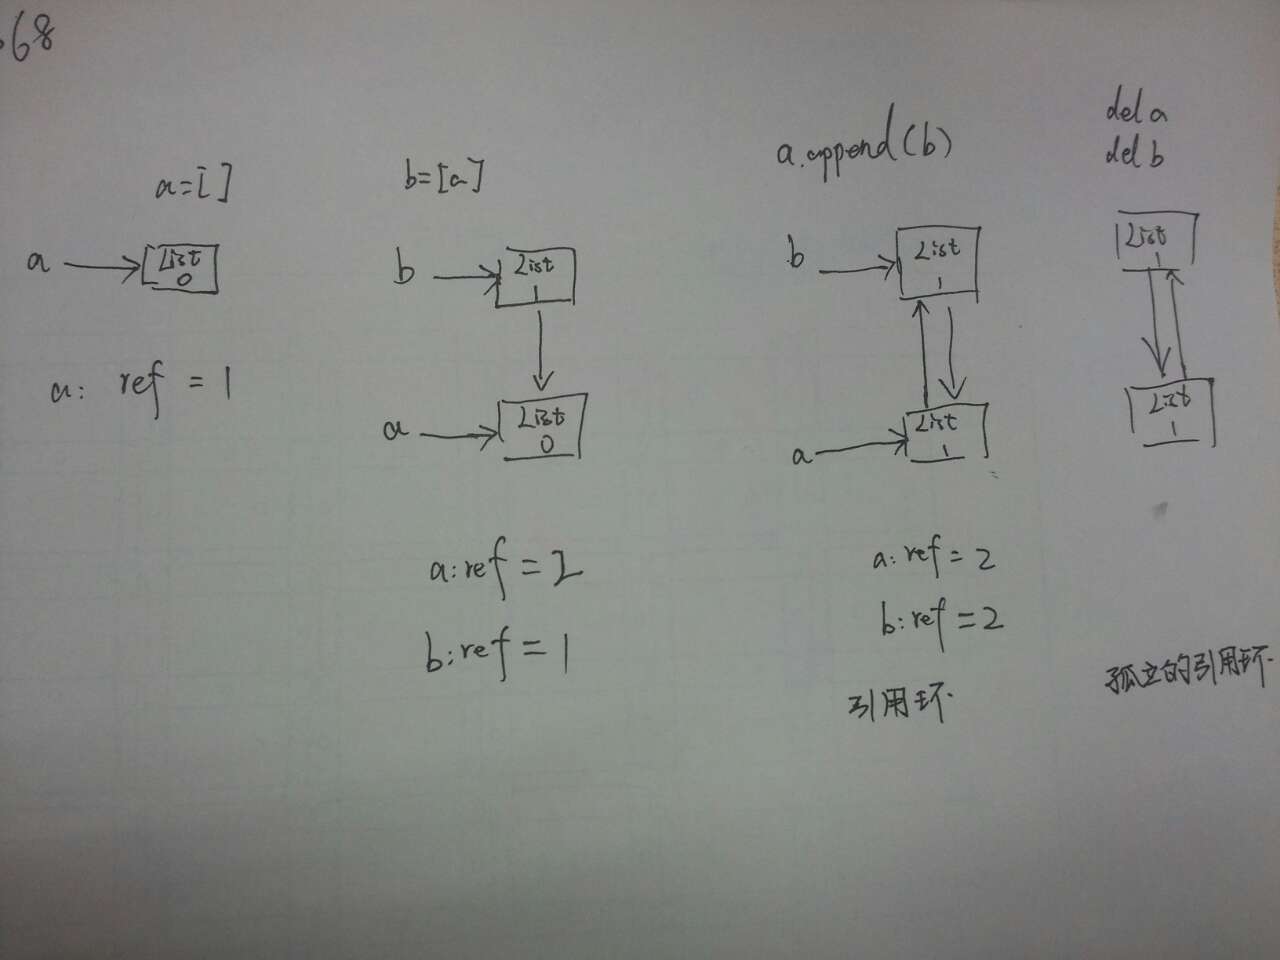 68
a=[]
a
List
0
a: ref = 1
b=[a]
b
List
1
a
List
0
a:ref = 2
b:ref = 1
a.append(b)
b
List
1
a
List
1
a:ref = 2
b:ref = 2
引用环
del a
del b
List
1
List
1
孤立的引用环.